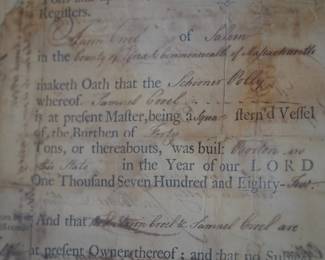 Registers.
of Salem
in the County of Essex & Commonwealth of Massachusetts
maketh Oath that the Schooner Polly
whereof Samuel
is at present Master, being a Square stern'd Vessel
of the Burthen of Forty
Tons, or thereabouts, was built in
this State in the Year of our LORD
One Thousand Seven Hundred and Eighty-
And that & Samuel are
at present Owner thereof; and that no